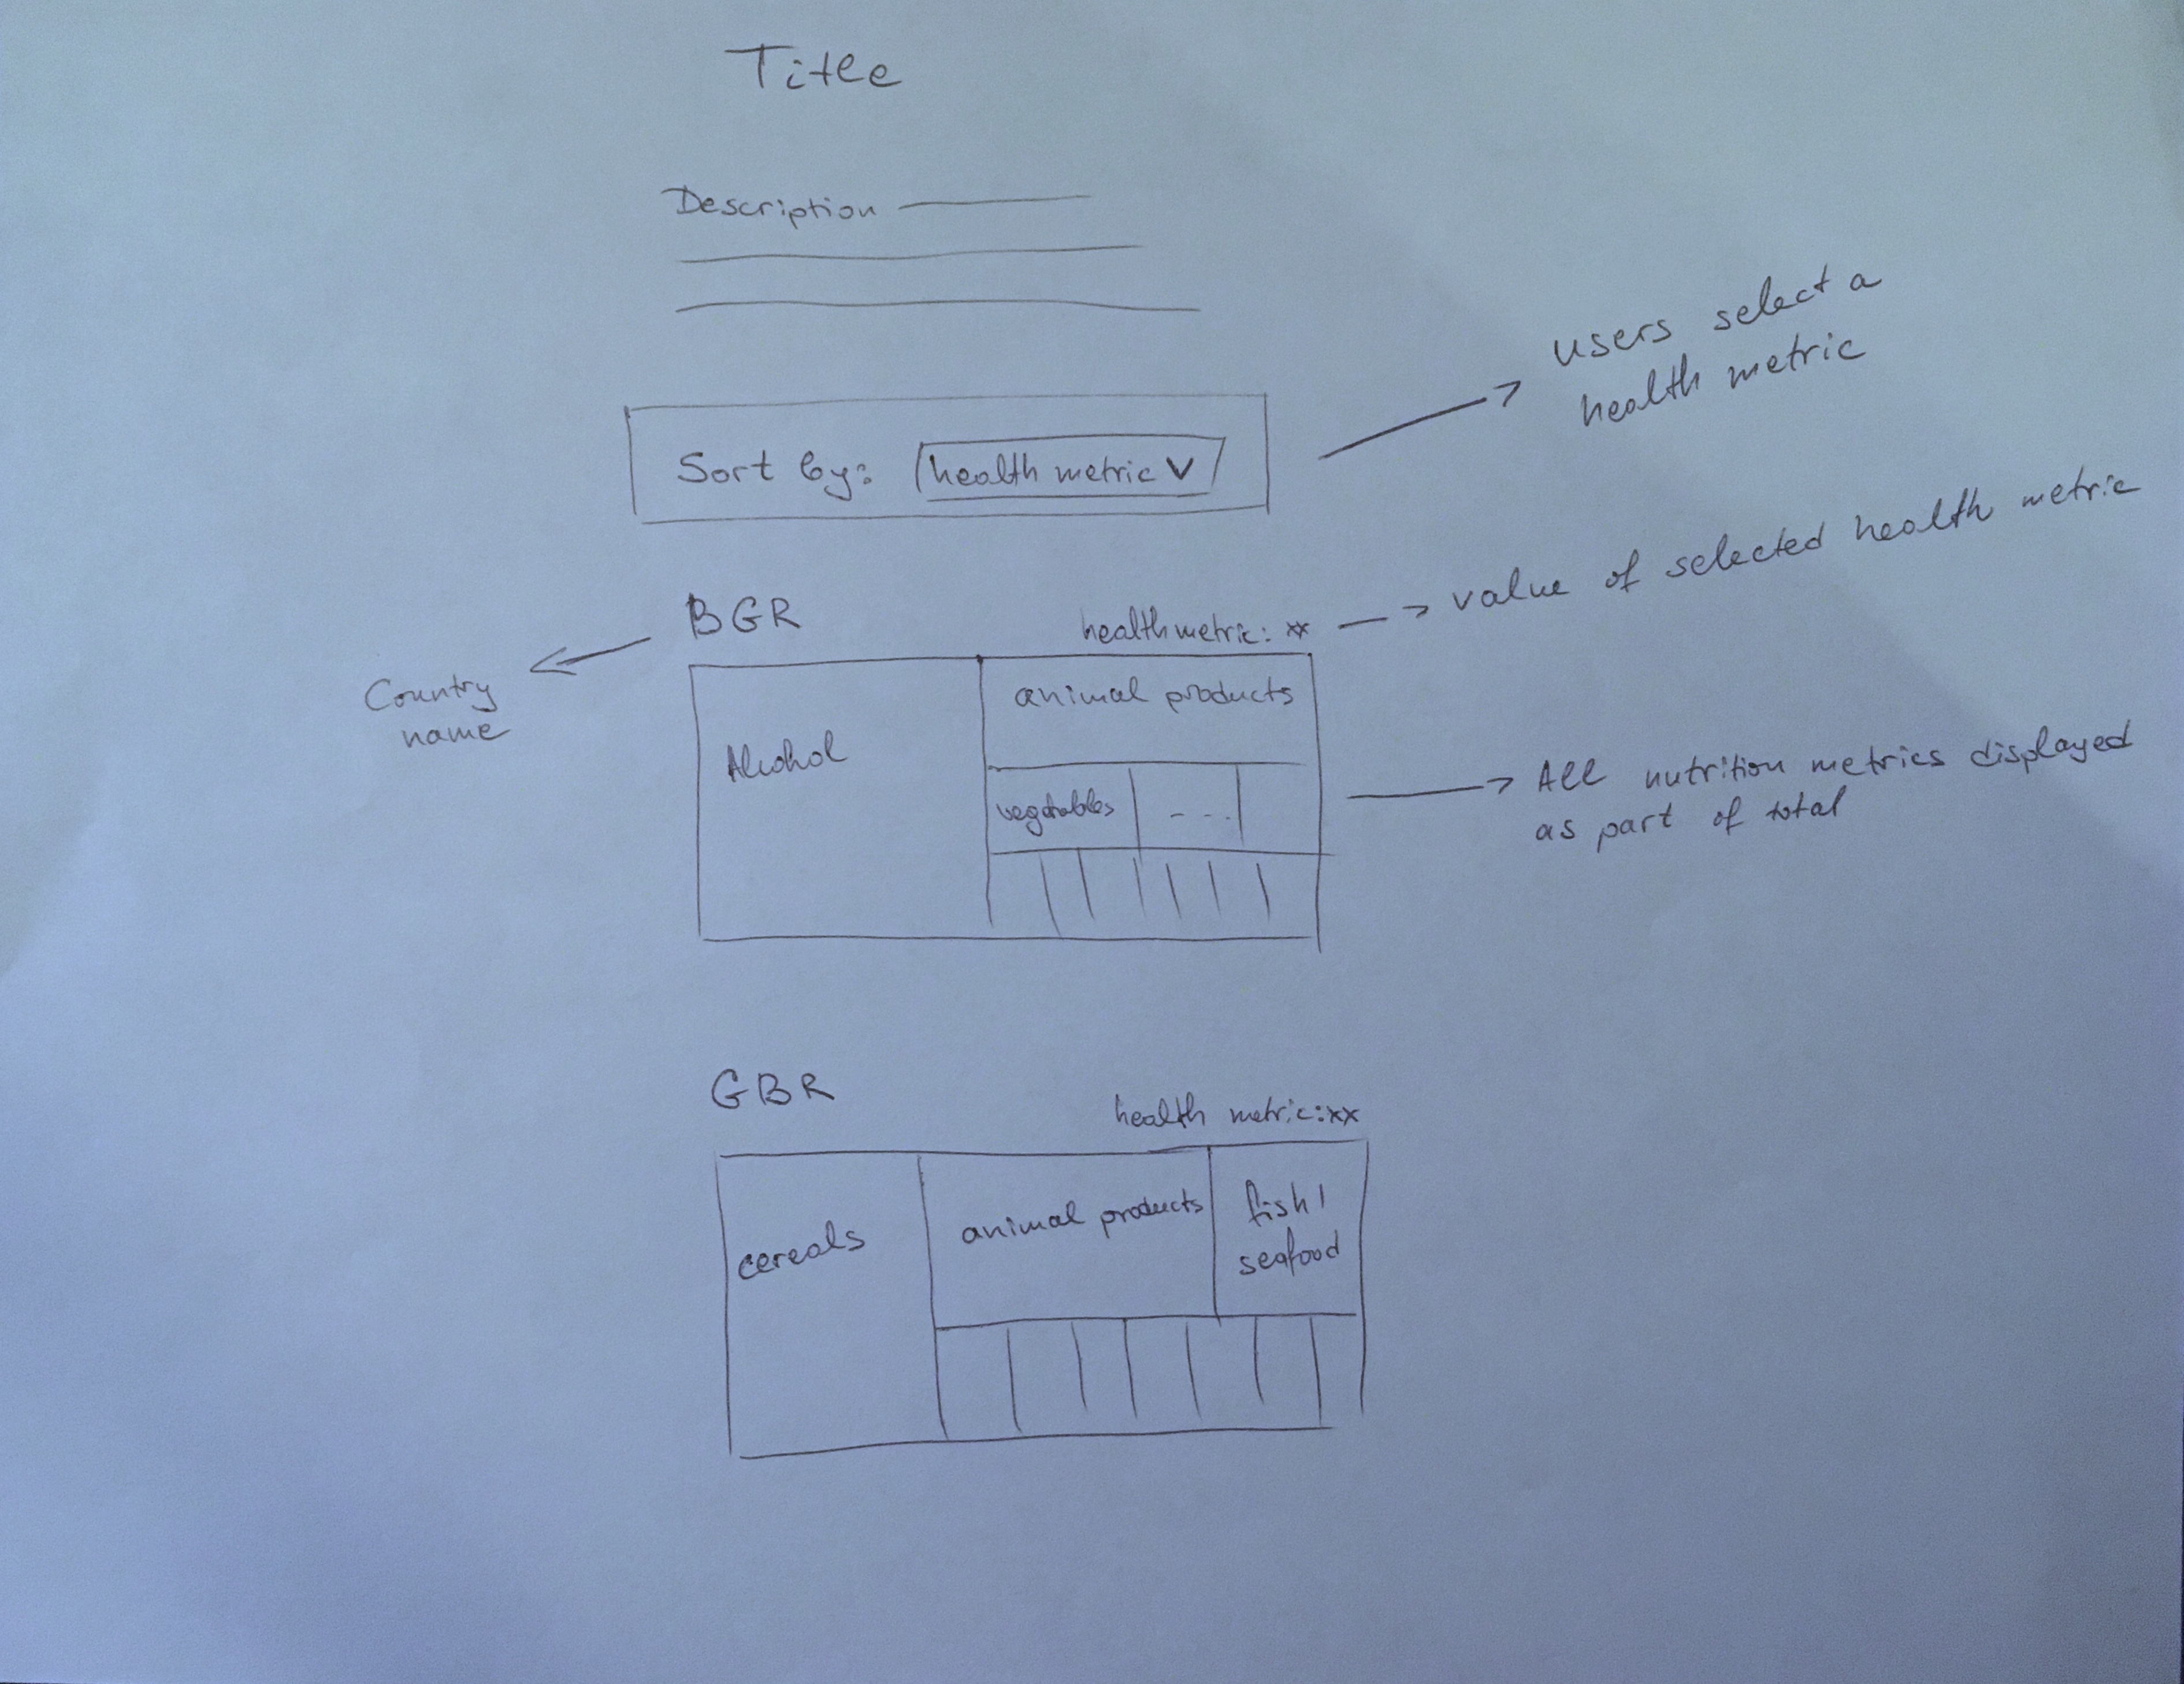 Title
Description
users select a
health metric
Sort by: health metric V
value of selected health metric
BGR
healthmetric: xx
Country
name
Alcohol
animal products
vegetables
- - ..
All nutrition metrics displayed
as part of total
GBR
health metric:xx
cereals
animal products
fish/
seafood